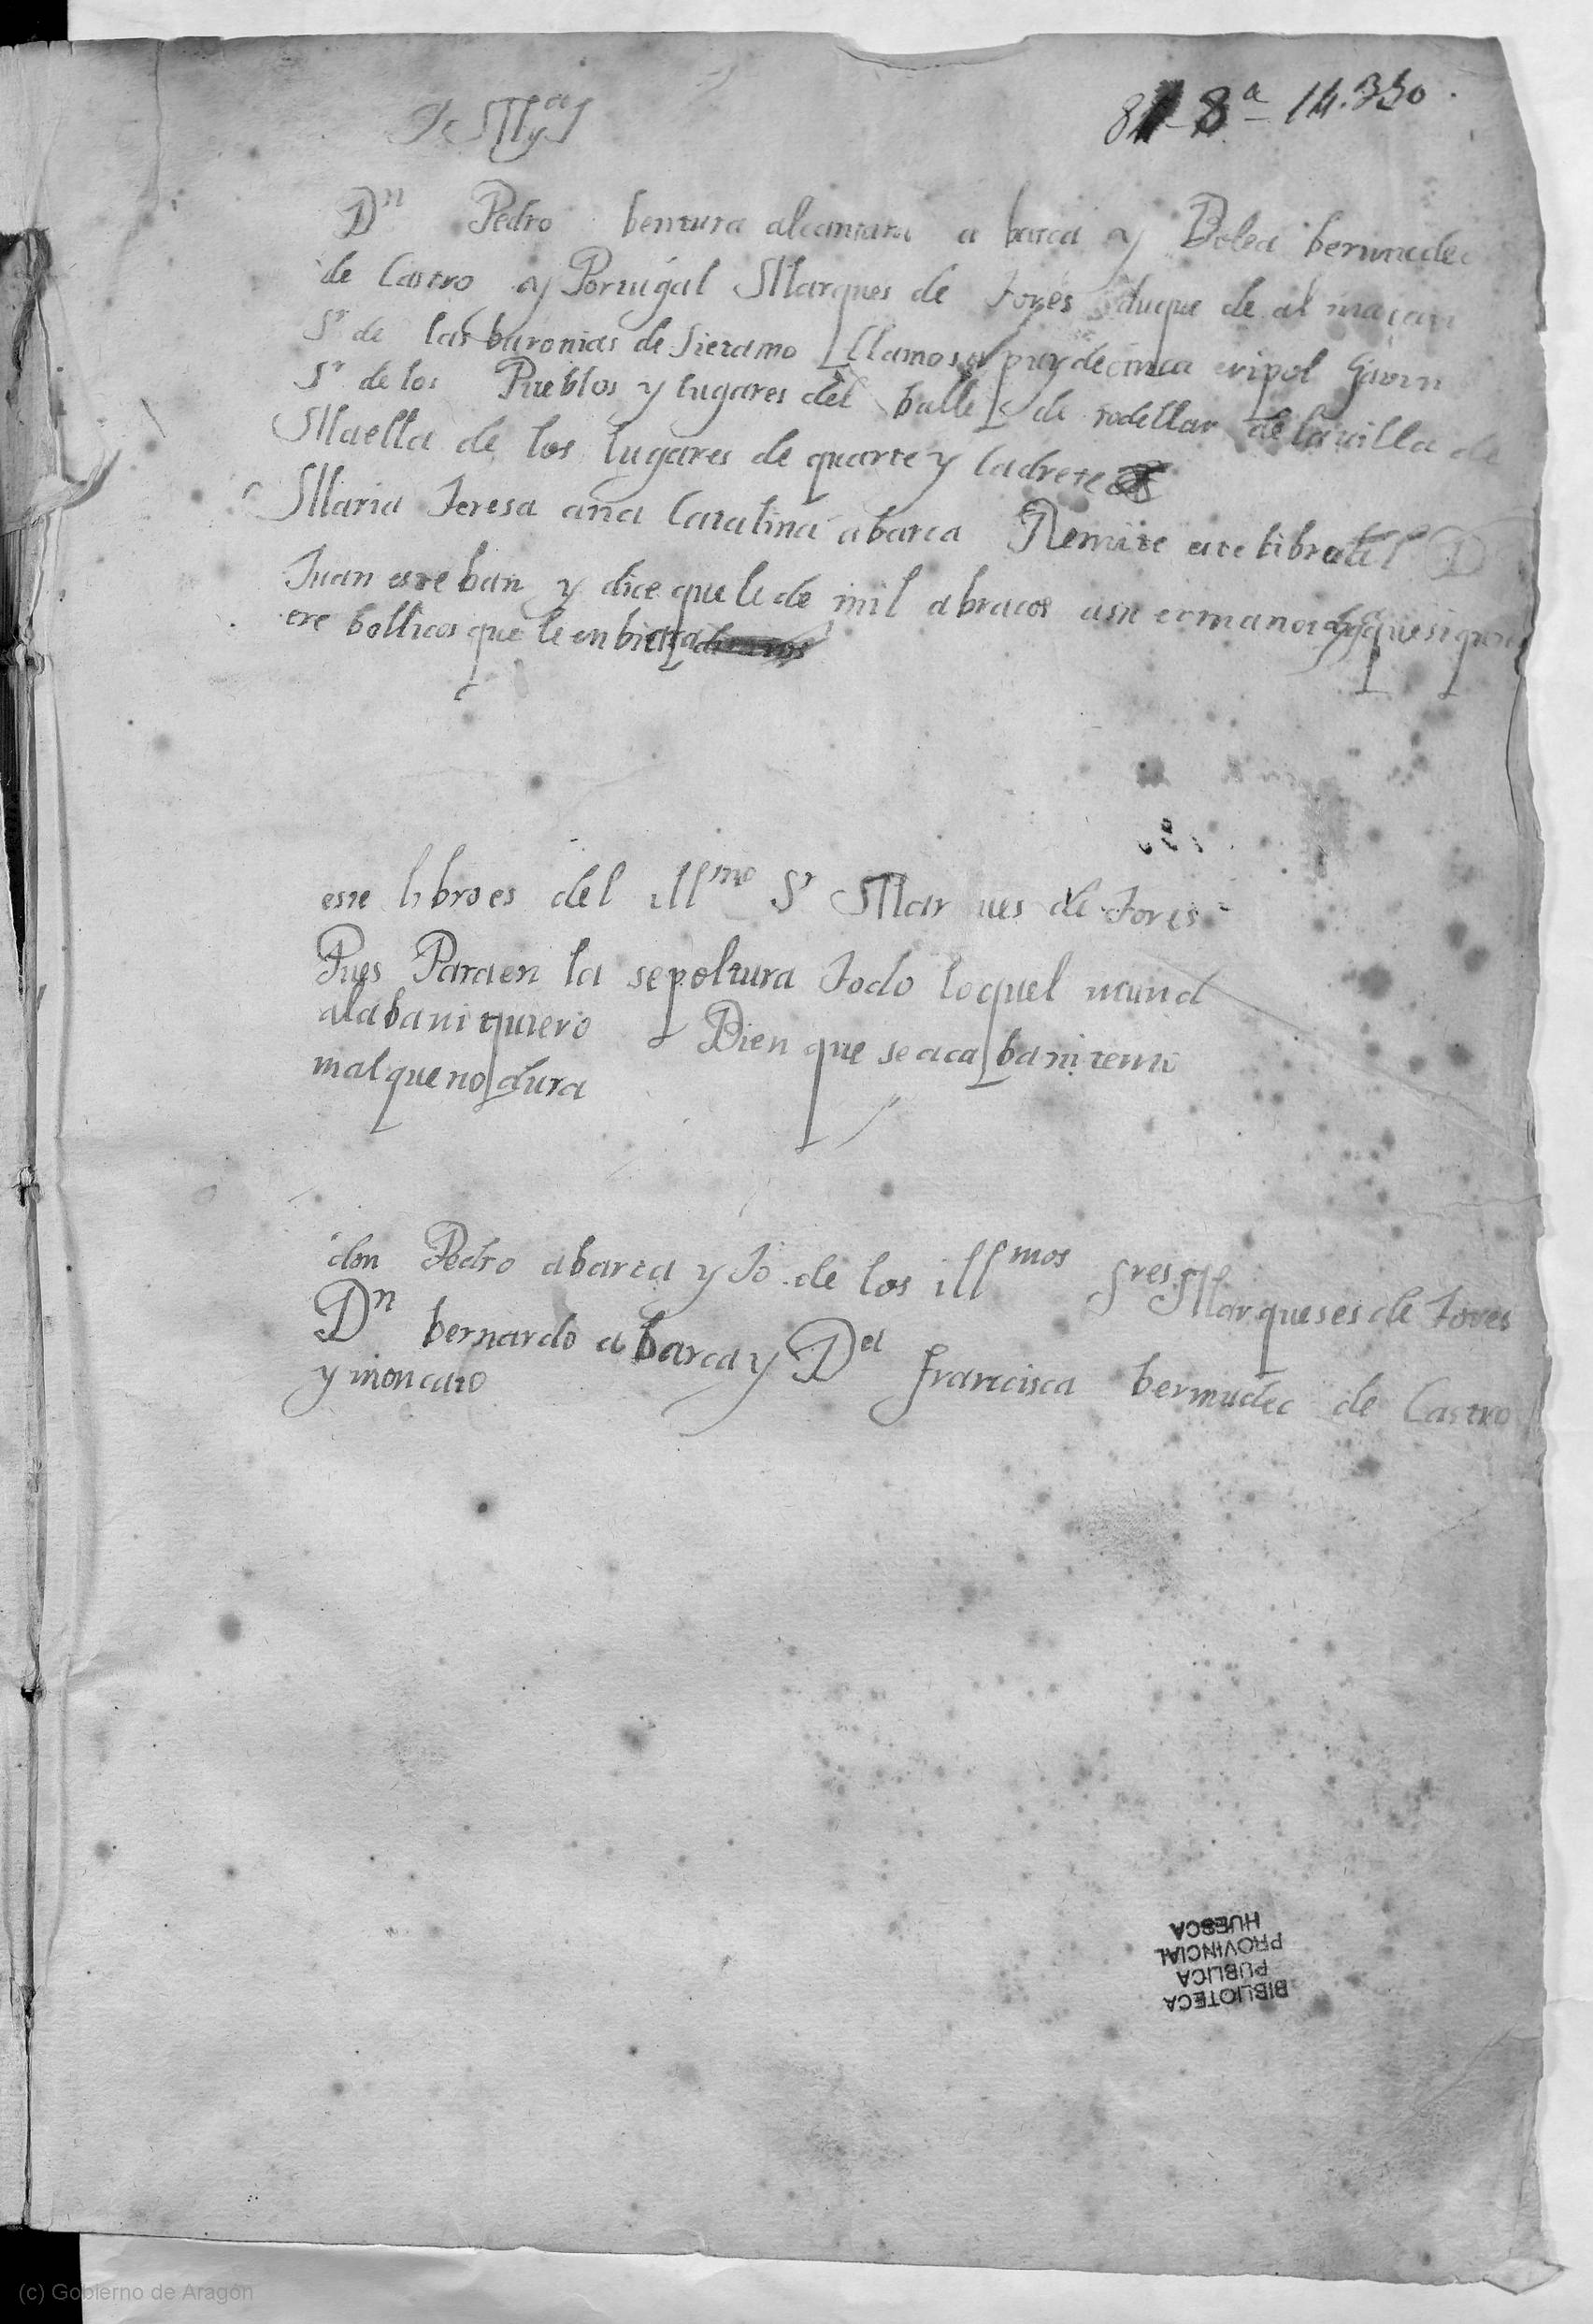 8ª 14.350.
Dn Pedro bentura alcantara a barca y Bolea bermudec
de Castro y Portugal Marques de Tores duque de al maçan
Sr de las baronias de Sietamo Llamosa puy de cinca eripol Gavin
Sr de los Pueblos y lugares del balle de rodellar de la villa de
Maella de los lugares de quarte y Cadrete
Maria Teresa ana Catalina abarca Remite este libro
Juan esteban y dice que le de mil abracos a su ermano que si qui
ere bollicos que le enbiara
este libro es del illmo Sr Marques de Tores
Pues Para en la sepoltura Todo loquel mund
alaba ni quiero Bien que se acaba ni temo
mal que no dura
don Pedro abarca y Jo de los illmos Sres Marqueses de Tores
Dn bernardo a barca y Da francisca bermudec de Castro
y moncaio
BIBLIOTECA
PUBLICA
PROVINCIAL
HUESCA
(c) Gobierno de Aragón